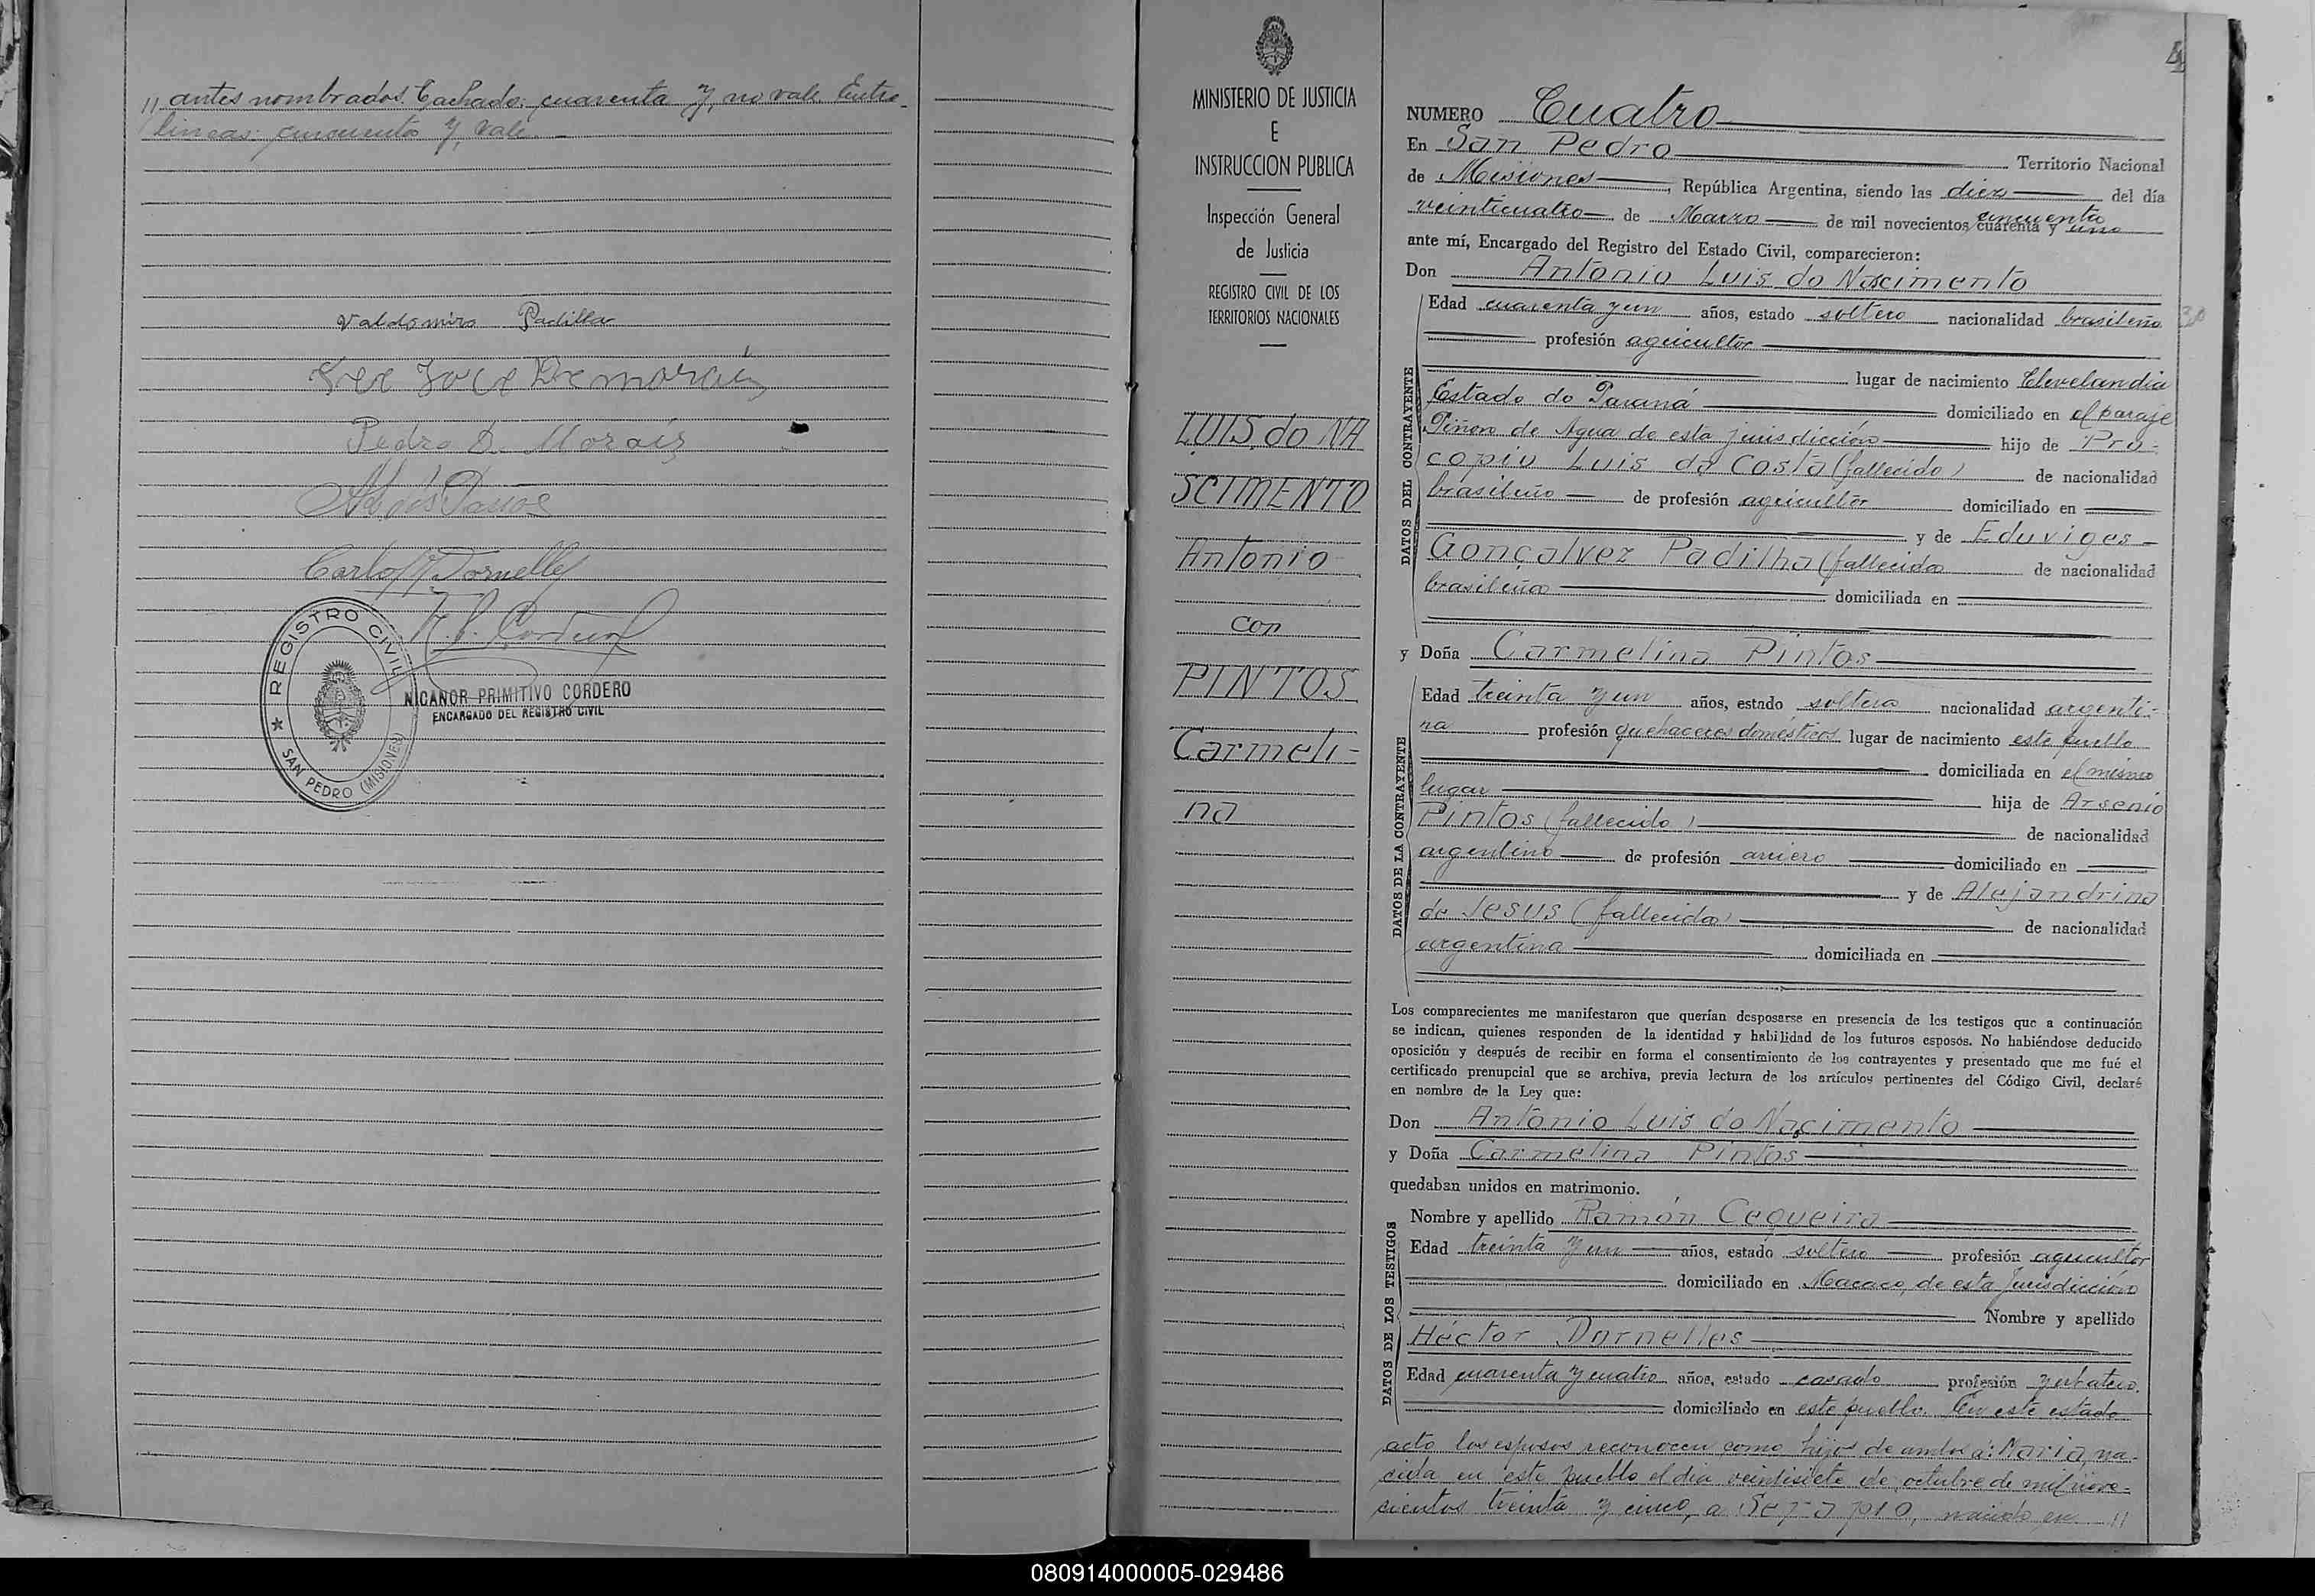 // antes nombrados. Tachado: cuarenta y, no vale. Entre-
lineas: cincuenta y, vale.
Valdomiro Padilha
José Demorais
Pedro D. Morais
Carlos Dornelles
N. P. Cordero
★ REGISTRO CIVIL
SAN PEDRO (MISIONES)
NICANOR PRIMITIVO CORDERO
ENCARGADO DEL REGISTRO CIVIL
MINISTERIO DE JUSTICIA
E
INSTRUCCION PUBLICA
Inspección General
de Justicia
REGISTRO CIVIL DE LOS
TERRITORIOS NACIONALES
LUIS do NA
SCIMENTO
Antonio
con
PINTOS
Carmeli-
na
4
NUMERO Cuatro
En San Pedro Territorio Nacional
de Misiones, República Argentina, siendo las diez del día
veinticuatro de Marzo de mil novecientos cuarenta y cincuenta uno
ante mí, Encargado del Registro del Estado Civil, comparecieron:
Don Antonio Luis do Nascimento
DATOS DEL CONTRAYENTE
Edad cuarenta y un años, estado soltero nacionalidad brasileño
30
profesión agricultor
lugar de nacimiento Clevelandia
Estado do Paraná domiciliado en el paraje
Piñon de Agua de esta jurisdicción hijo de Pro-
copio Luis da Costa (fallecido) de nacionalidad
brasileño de profesión agricultor domiciliado en
y de Eduviges
Gonçalvez Padilha (fallecida de nacionalidad
brasileña domiciliada en
y Doña Carmelina Pintos
DATOS DE LA CONTRAYENTE
Edad treinta y un años, estado soltera nacionalidad argenti-
na profesión quehaceres domésticos lugar de nacimiento este pueblo
domiciliada en el mismo
lugar hija de Arsenio
Pintos (fallecido) de nacionalidad
argentino de profesión arriero domiciliado en
y de Alejandrina
de Jesus (fallecida) de nacionalidad
argentina domiciliada en
Los comparecientes me manifestaron que querían desposarse en presencia de los testigos que a continuación
se indican, quienes responden de la identidad y habilidad de los futuros esposos. No habiéndose deducido
oposición y después de recibir en forma el consentimiento de los contrayentes y presentado que me fué el
certificado prenupcial que se archiva, previa lectura de los artículos pertinentes del Código Civil, declaré
en nombre de la Ley que:
Don Antonio Luis do Nascimento
y Doña Carmelina Pintos
quedaban unidos en matrimonio.
DATOS DE LOS TESTIGOS
Nombre y apellido Ramón Cequeira
Edad treinta y un años, estado soltero profesión agricultor
domiciliado en Macaco, de esta Jurisdicción
Nombre y apellido
Héctor Dornelles
Edad cuarenta y cuatro años, estado casado profesión yerbatero.
domiciliado en este pueblo. En este estado
acto los esposos reconocen como hijos de ambos a: Maria, na-
cida en este pueblo el día veintisiete de octubre de mil nove-
cientos treinta y cinco, a nacido en //
080914000005-029486